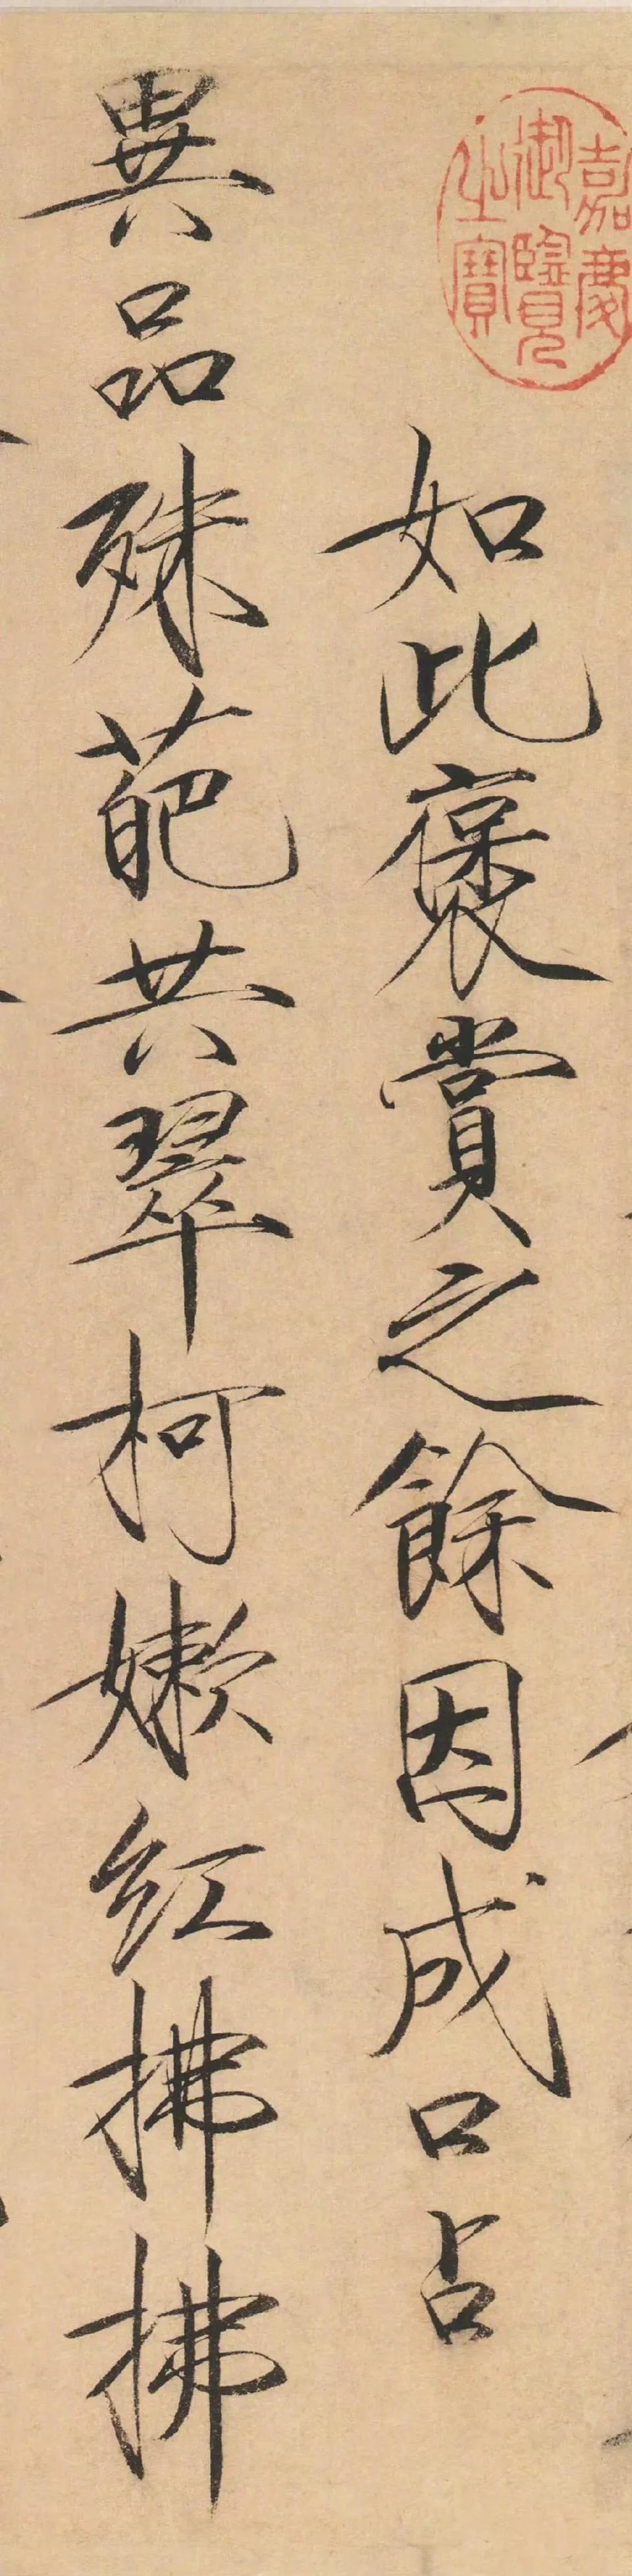 嘉慶
御覽
之寶
如此褒賞之餘因成口占
異品殊葩共翠柯嫩紅拂拂